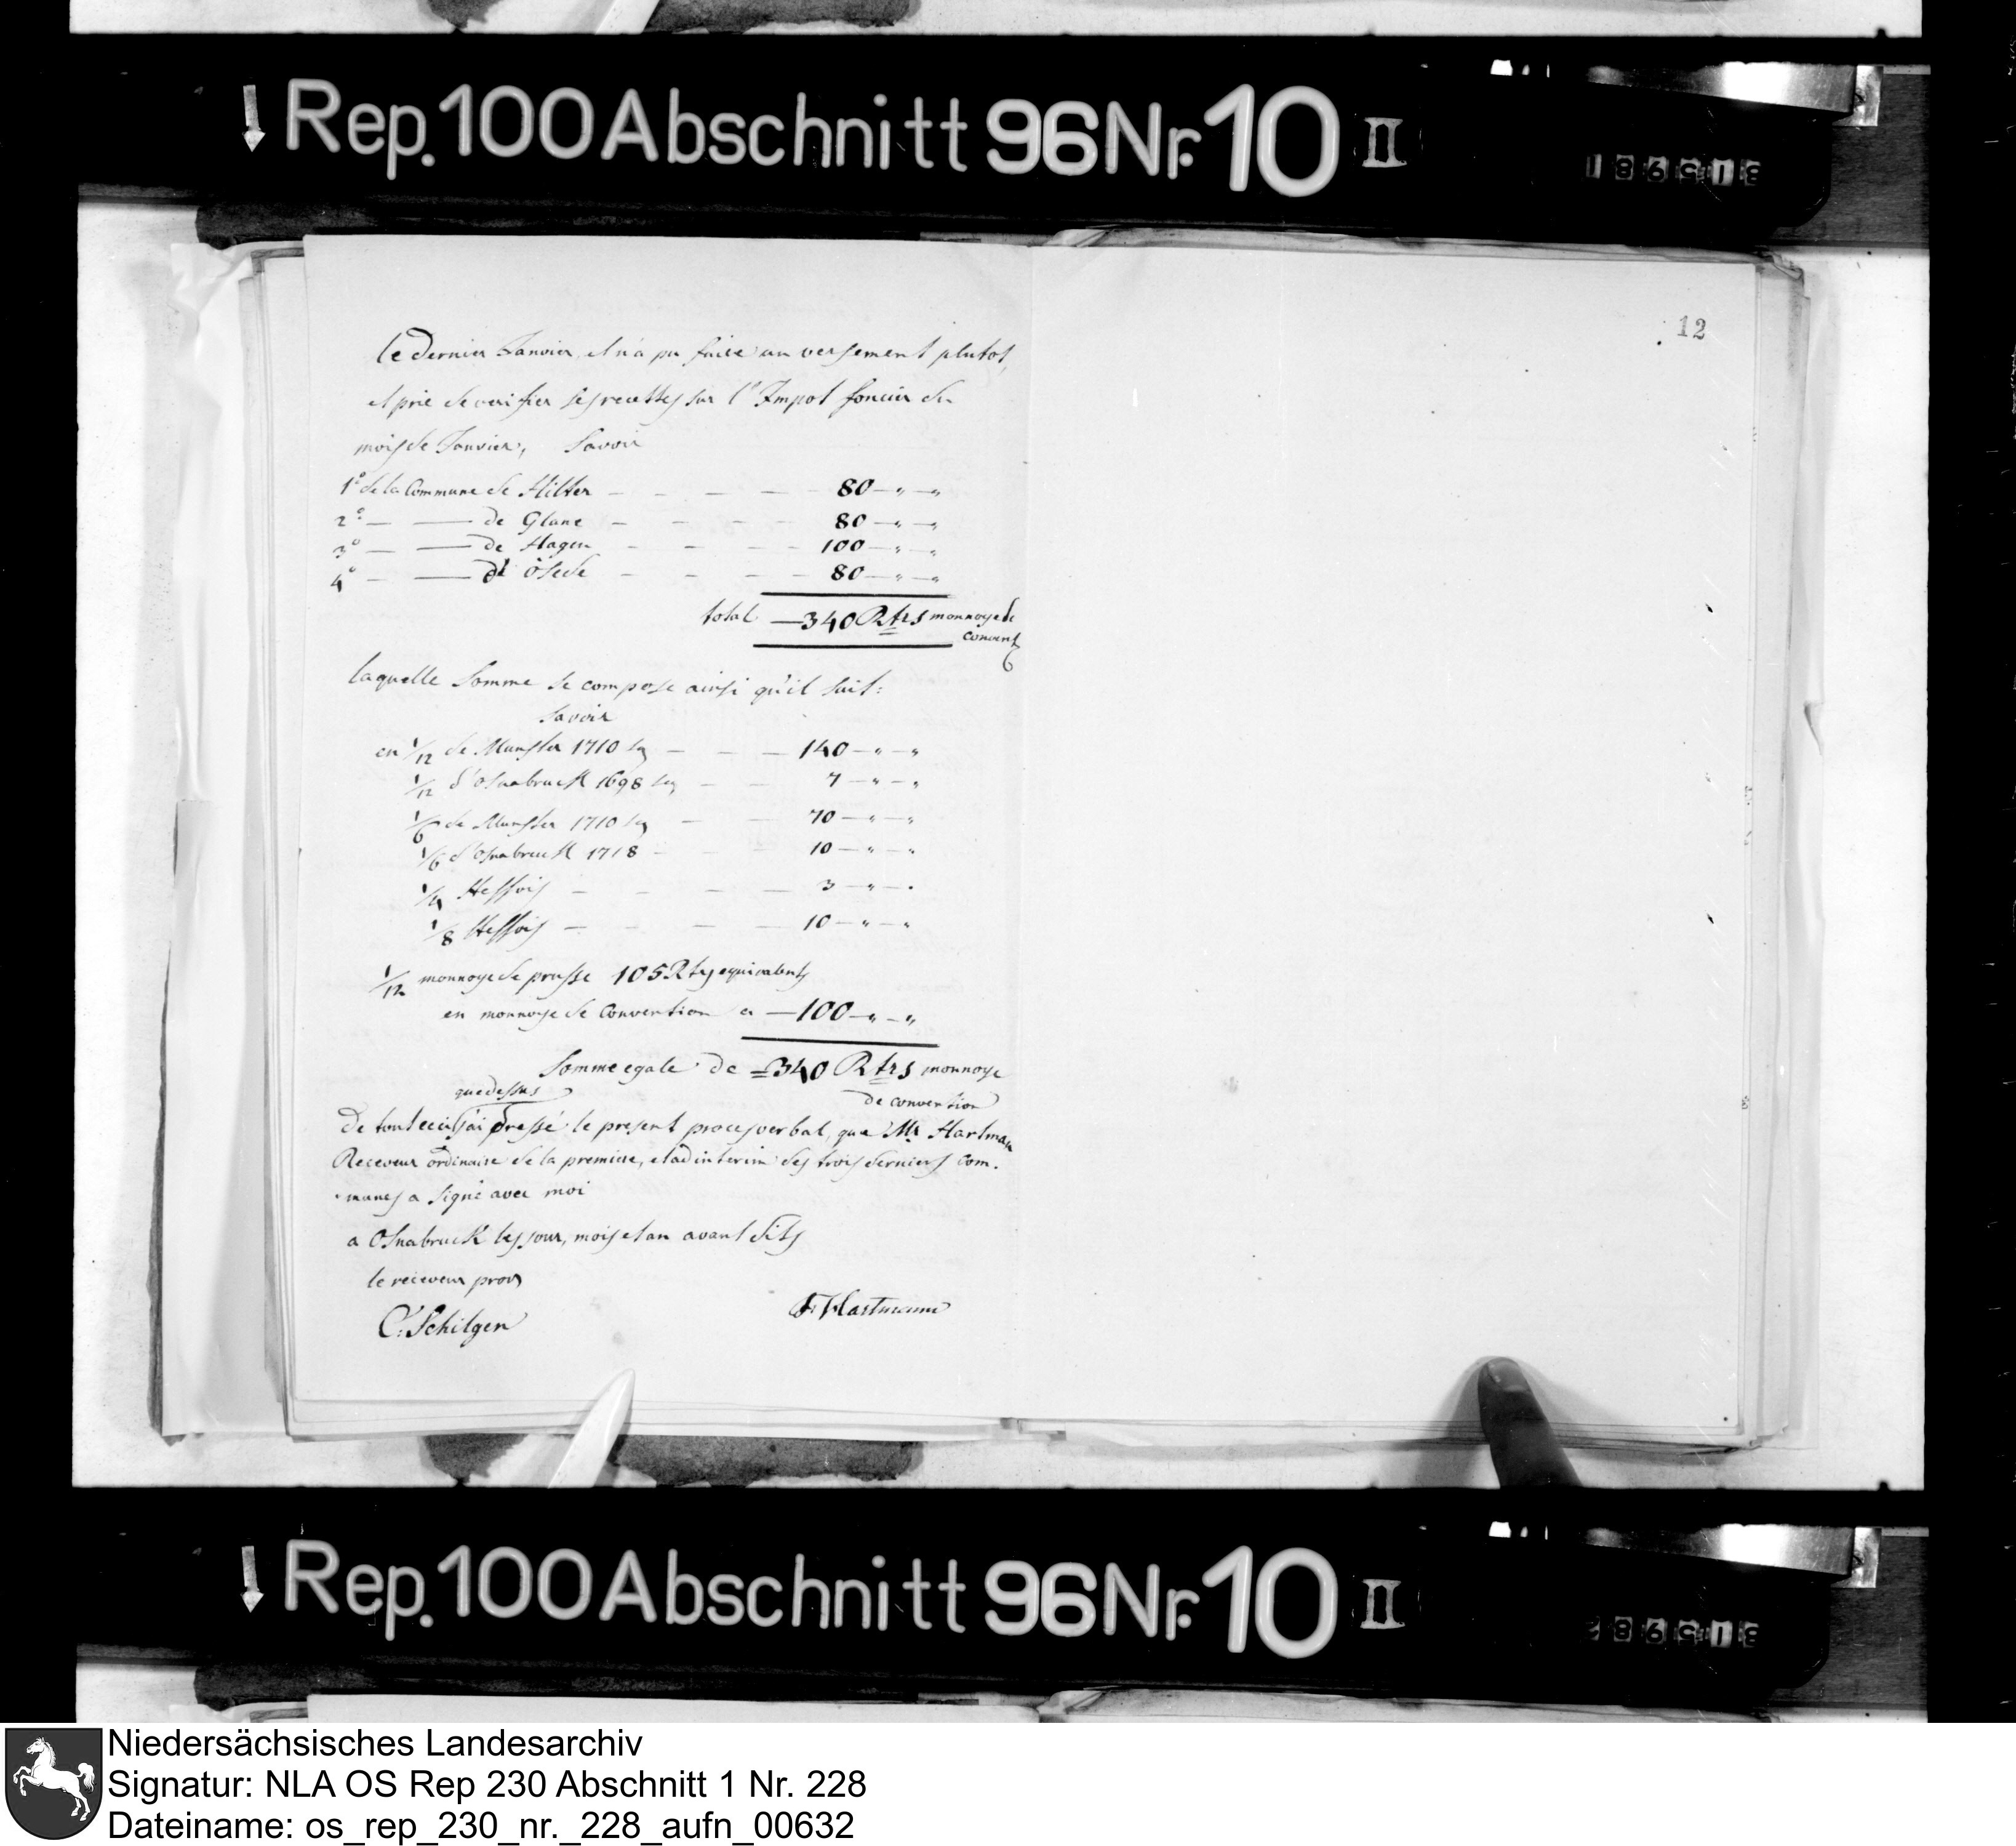 ↓ Rep. 100 Abschnitt 96 Nr. 10 II
12
le dernier Janvier, et n'a pu faire un versement plutot,
et prie de verifier ses recettes sur l'Impot foncier du
mois de Janvier, Savoir
1° de la Commune de Hilter — — — — 80 — " — "
2° — — de Glane — — — — 80 — " — "
3° — — de Hagen — — — — 100 — " — "
4° — — d' Ösede — — — — 80 — " — "
total — 340 Rtrs monnoye de
convent
laquelle Somme se compose ainsi qu'il suit:
Savoir
en 1/12 de Munster 1710 — — — 140 — " — "
1/12 d'Osnabruck 1698 — — 7 — " — "
1/6 de Munster 1710 — — 70 — " — "
1/6 d'Osnabruck 1718 — — 10 — " — "
1/4 Hessois — — — — 3 — " — "
1/8 Hessois — — — — 10 — " — "
1/12 monnoye de prusse 105 Rtrs equivalents
en monnoye de Convention a — 100 — " — "
Somme egale de = 340 Rtrs monnoye
que dessus de convention
De tout ceci j'ai dressé le present proces verbal, que Mr. Hartman
Receveur ordinaire de la premiere, et ad interim des trois derniers com.
munes a signé avec moi
a Osnabruck les jour, mois et an avant dits
le receveur prov
C. Schilgen
F. Hartmann
↓ Rep. 100 Abschnitt 96 Nr. 10 II
Niedersächsisches Landesarchiv
Signatur: NLA OS Rep 230 Abschnitt 1 Nr. 228
Dateiname: os_rep_230_nr._228_aufn_00632